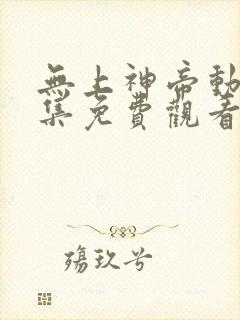 無上神帝動
集免費觀看
殤玖兮